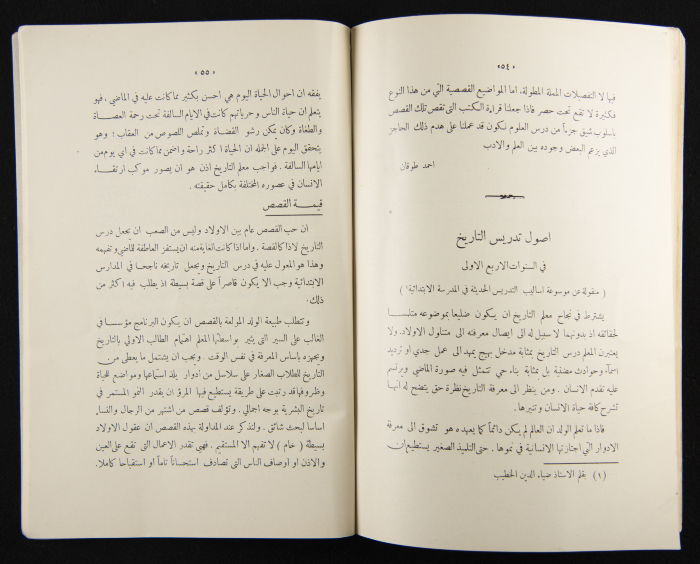 «٥٤»
فيها لا التفصيلات المملة المطولة. اما المواضيع القصصية التي من هذا النوع
فكثيرة لا تقع تحت حصر فاذا جعلنا قراءة الكتب التي تقص تلك القصص
باسلوب شيق جزءاً من درس العلوم نكون قد عملنا على هدم ذلك الحاجز
الذي يزعم البعض وجوده بين العلم والادب
احمد طوقان
اصول تدريس التاريخ
في السنوات الاربع الاولى
( منقولة عن موسوعة اساليب التدريس الحديثة في المدرسة الابتدائية ١ )
يشترط في نجاح معلم التاريخ ان يكون ضليعاً بموضوعه متلبسا
لحقائقه اذ بدونهما لا سبيل له الى ايصال معرفته الى متناول الاولاد. ولا
يعتبرن المعلم درس التاريخ بمثابة مدخل بهيج يمهد الى عمل جدي او ترديد
اسماء وحوادث مضنية بل بمثابة بناء حي تتمثل فيه صورة الماضي ويرتسم
عليه تقدم الانسان . ومن ينظر الى معرفة التاريخ نظرة حق يتضح له انها
تشرح كافة حياة الانسان وتنيرها .
فاذا ما تعلم الولد ان العالم لم يكن دائماً كما يعهده هو تشوق الى معرفة
الادوار التي اجتازتها الانسانية في نموها . حتى التلميذ الصغير يستطيع ان
(١) بقلم الاستاذ ضياء الدين الخطيب
«٥٥»
يفقه ان احوال الحياة اليوم هي احسن بكثير مما كانت عليه في الماضي، فهو
يتعلم ان حياة الناس وحرياتهم كانت في الايام السالفة تحت رحمة العصاة
والطغاة وكان يمكن رشو القضاة وتملص اللصوص من العقاب ؛ وهو
يتحقق اليوم على الجملة ان الحياة اكثر راحة واضمن مما كانت في اي يوم من
ايامها السالفة . فواجب معلم التاريخ اذن هو ان يصور موكب ارتقاء
الانسان في عصوره المختلفة بكامل حقيقته .
قيمة القصص
ان حب القصص عام بين الاولاد وليس من الصعب ان يجعل درس
التاريخ لاذا كالقصة . واما اذا كانت الغاية منه ان يستفز العاطفة للماضي وتفهمه
وهذا هو المعول عليه في درس التاريخ ويجعل تاريخه ناجحا في المدارس
الابتدائية وجب الا يكون قاصراً على قصة بسيطة اذ يطلب فيه اكثر من
ذلك .
وتتطلب طبيعة الولد المولعة بالقصص ان يكون البرنامج مؤسسا في
الغالب على السير التي يثير بواسطتها المعلم اهتمام الطالب الاولي بالتاريخ
ويجهزه باساس المعرفة في نفس الوقت . ويجب ان يشتمل ما يعطى من
التاريخ للطلاب الصغار على سلاسل من ادوار يلذ استماعها ومواضع للحياة
وظروفها قد رتبت على طريقة يستطيع فيها المرء ان يقدر النمو المستمر في
تاريخ البشرية بوجه اجمالي . وتؤلف قصص من اشتهر من الرجال والنساء
اساسا لبحث شائق . ولنذكر عند المداولة بهذه القصص ان عقول الاولاد
بسيطة ( خام ) لا تفهم الا المستقيم. فهي تقدر الاعمال التي تقع على العين
والاذن او اوصاف الناس التي تصادف استحساناً تاماً او استقباحا كاملا.